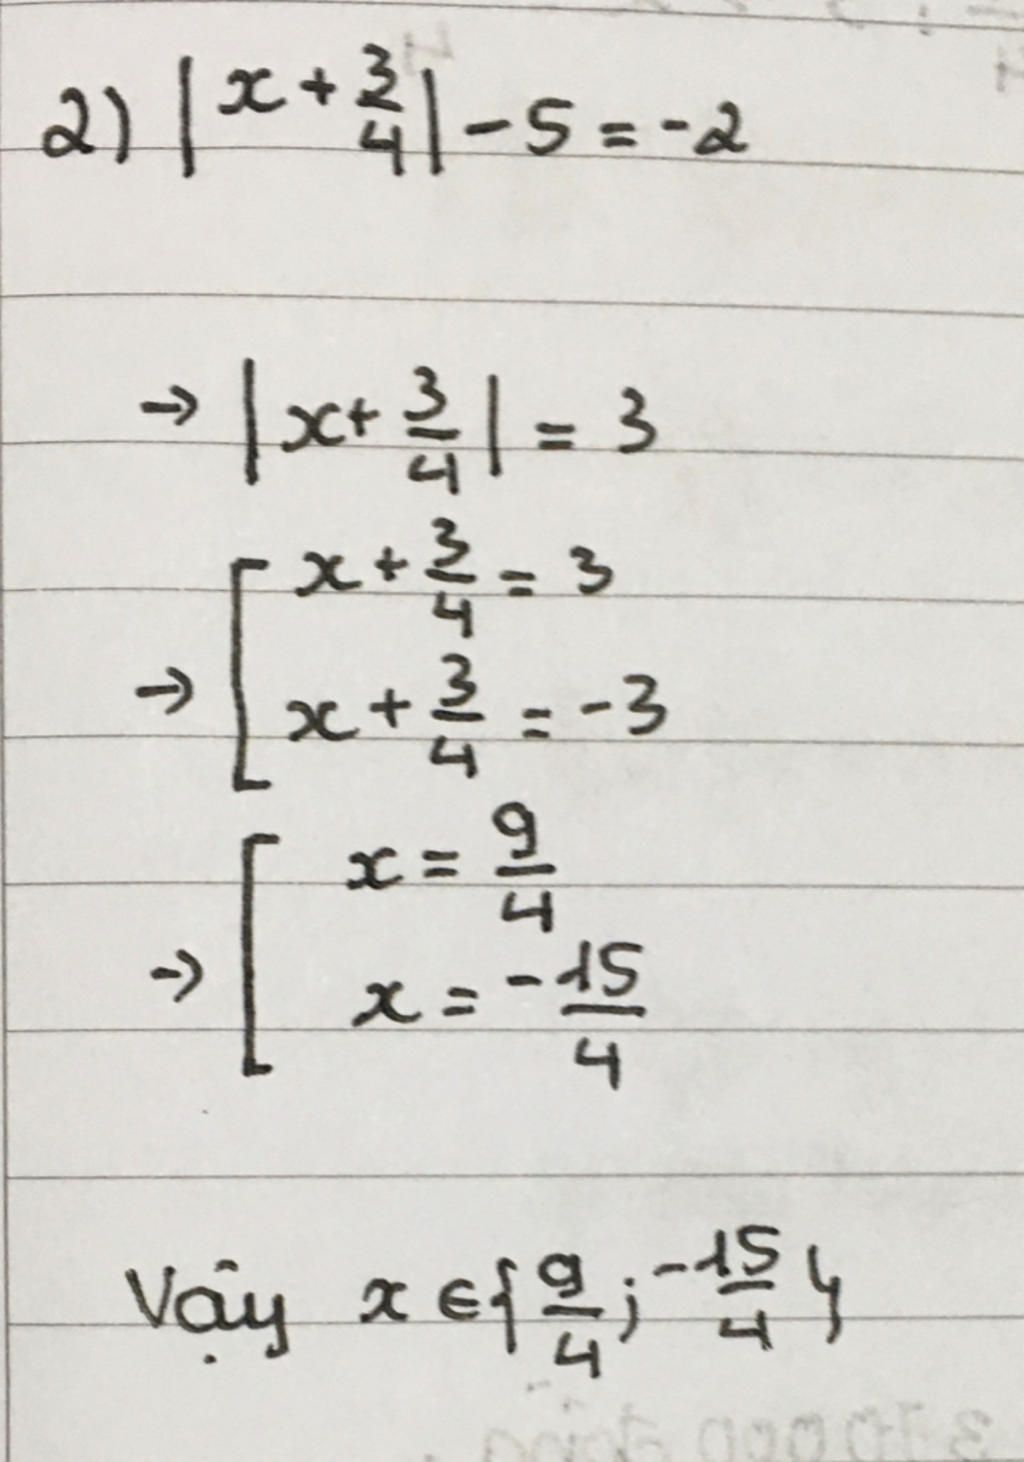 2) |x + 3/4| - 5 = -2
→ |x + 3/4| = 3
→ [ x + 3/4 = 3
x + 3/4 = -3
→ [ x = 9/4
x = -15/4
Vậy x ∈ { 9/4 ; -15/4 }